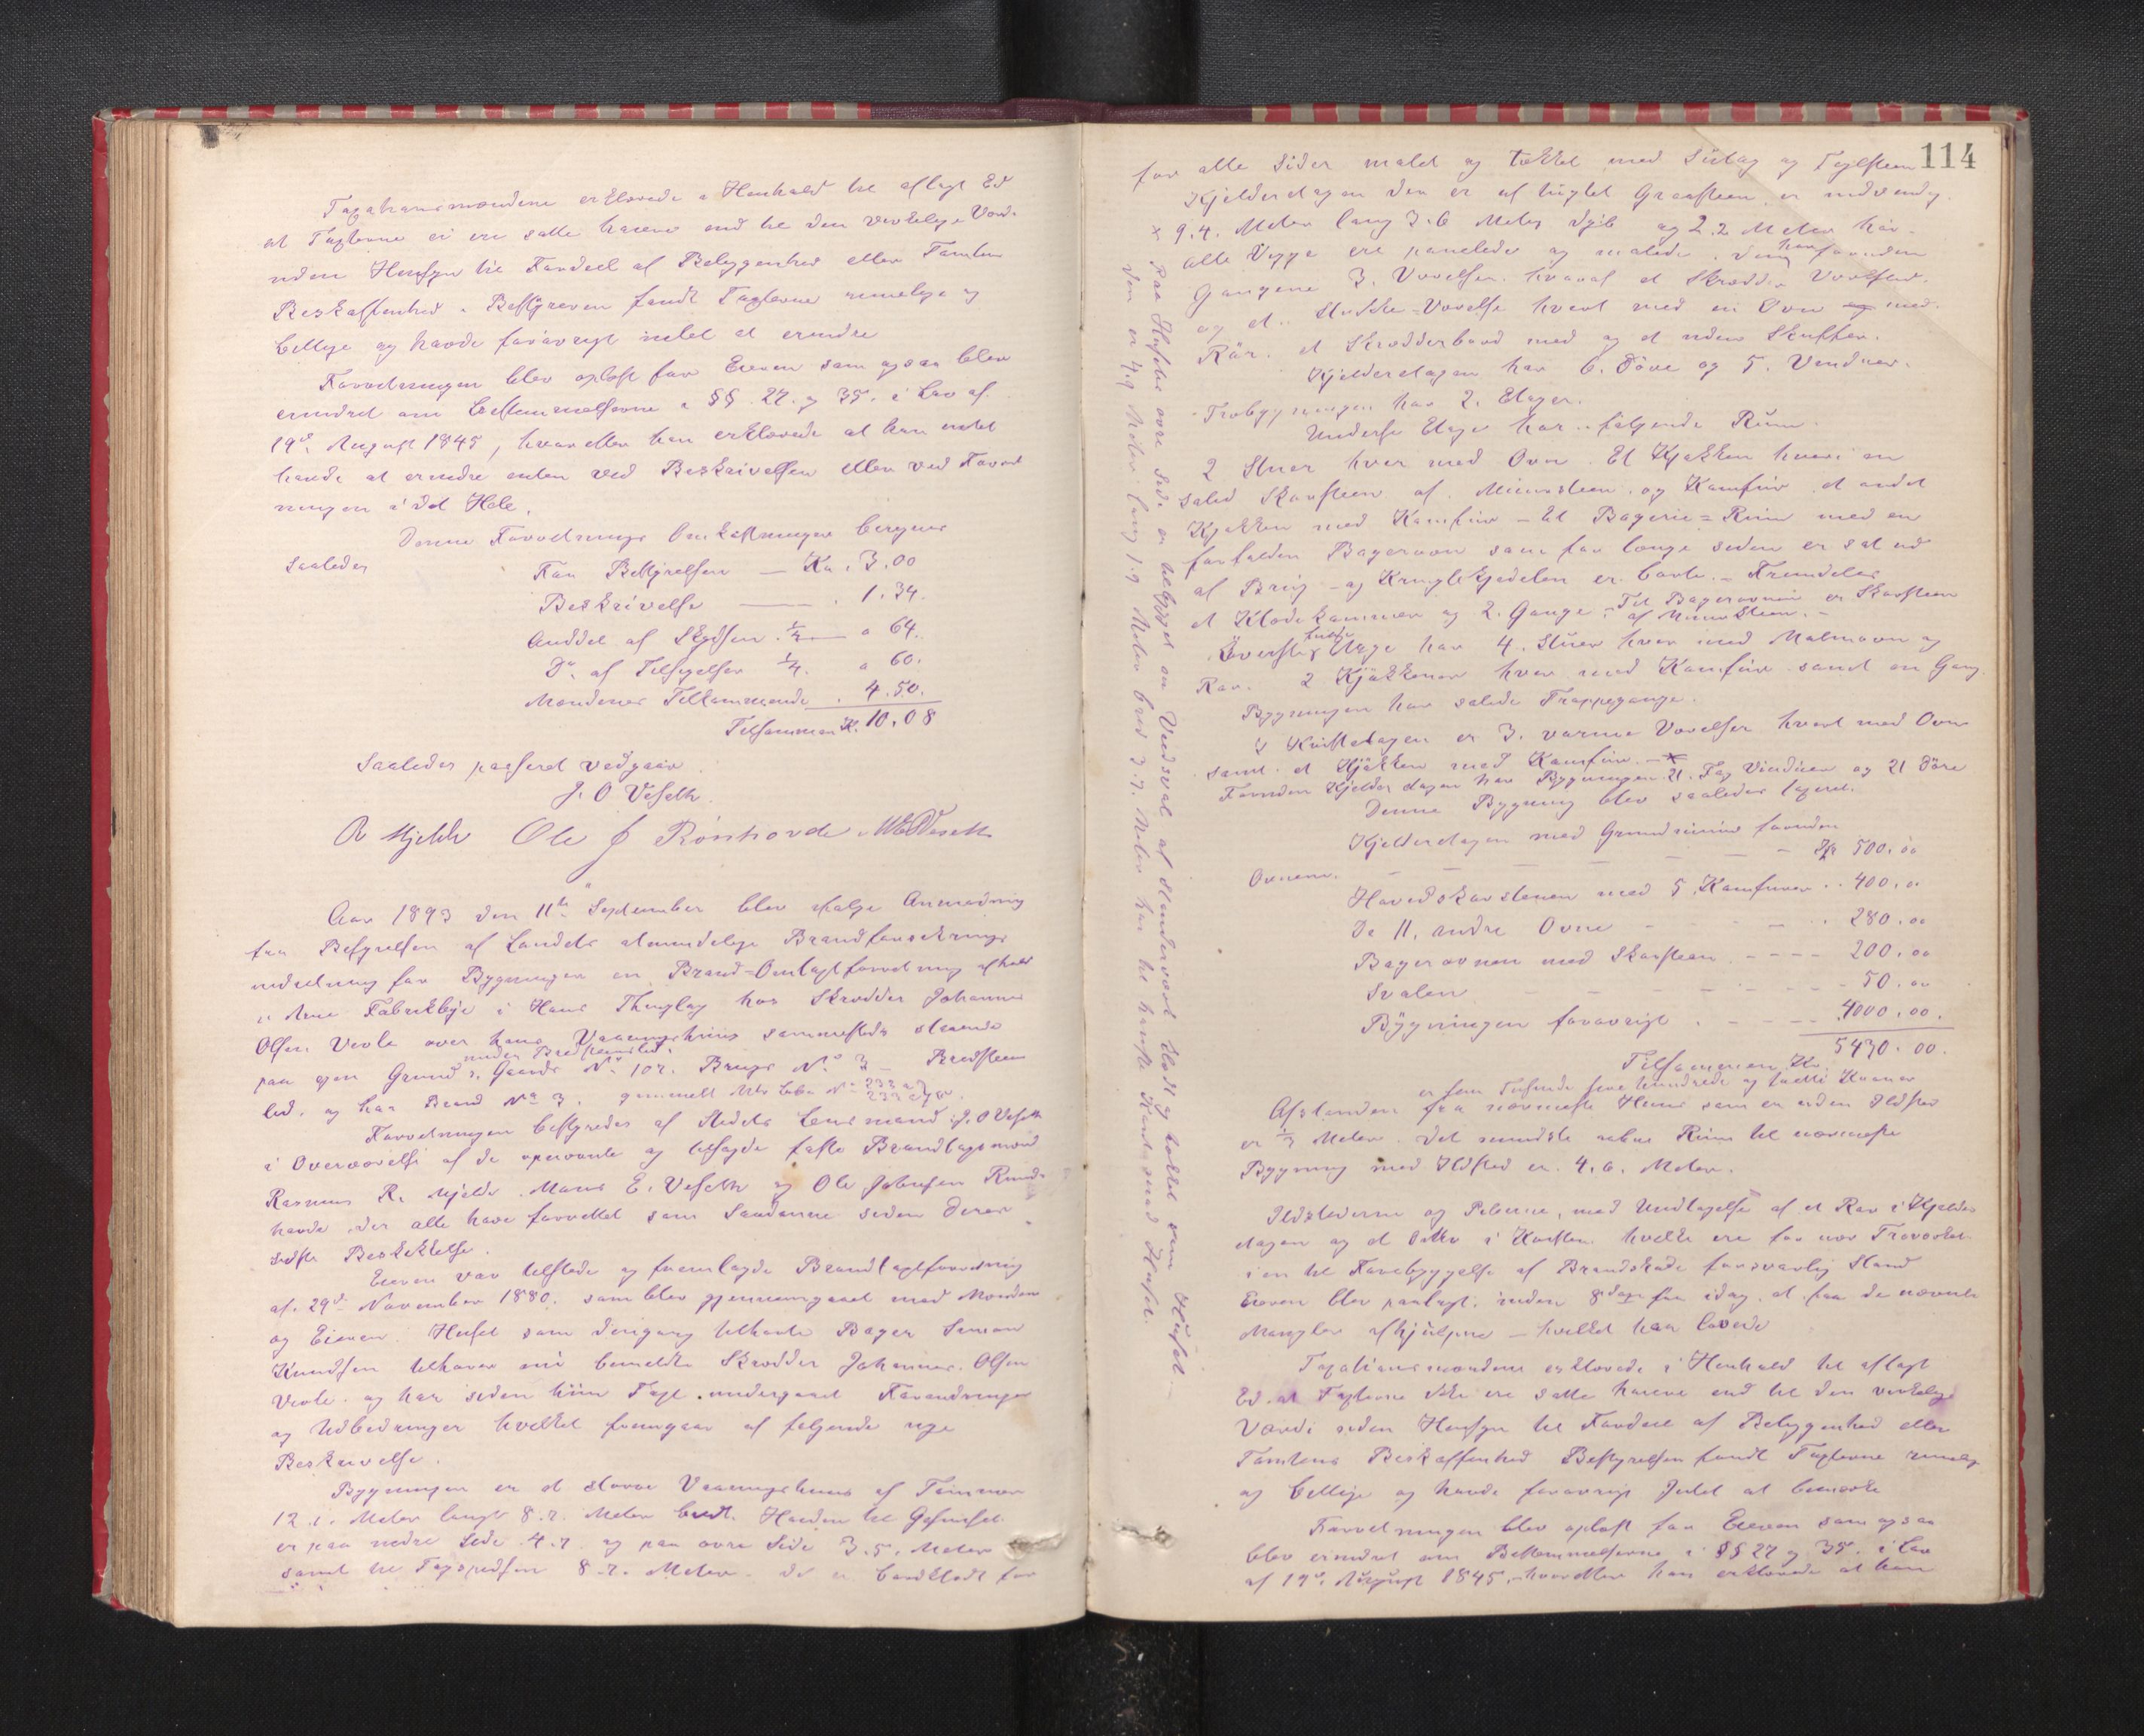 Taxationsmændene erklærede i Henhold til aflagt Ed
at Taxterne ei ere satte høiere end til den virkelige Værdi
uden Hensyn til Fordeel af Beliggenhed eller Tomtens
Beskaffenhed. Bestyreren fandt Taxterne rimelige og
billige og havde forøvrigt intet at erindre
Forretningen blev oplæst for Eieren som ogsaa blev
erindret om Bestemmelserne i §§ 27 og 35. i Lov af
19de August 1845, hvorefter han erklærede at han intet
havde at erindre enten ved Beskrivelsen eller ved Forret
ningen i det Hele.
Denne Forretnings Omkostninger beregnes
saaledes
For Bestyrelsen — Kr. 3,00
Beskrivelse — . 1.34.
Anddel af Skydsen ¼ — " 64.
Do. af Tilsigelser ¼. " 60.
Mændenes Tilkommende . 4.50.
Tilsammen Kr. 10,08
Saaledes passeret vedgaar
J. O Veseth
R Mjelde Ole J Rønhovde M E Veseth
Aar 1893 den 11te September blev ifølge Anmodning
fra Bestyrelsen af Landets almindelige Brandforsikrings
indretning for Bygninger en Brand-Omtaxtforretning afholdt
i Arne Fabrikbye i Hans Thinglag hos Skrædder Johannes
Olsen Vevle over hans Vaaningshuus sammesteds staaende
under Bredsteensled.
paa egen Grund, Gaards No. 107. Brugs No 3 – Bredsteens
led. og har Brand No 3. gammelt Mtr. Lbn No 232 a
233 c
Forretningen bestyredes af Stedets Lensmand J. O Veseth
i Overværelse af de opnævnte og tilsagte faste Brandtaxtmænd
Rasmus R. Mjelde. Mons E. Veseth og Ole Johnsen Rund-
hovde, der alle have forrettet som Saadanne siden deres
sidste Beskikkelse.
Eieren var tilstede og fremlagde Brandtaxtforretning
af 29de November 1880. som blev gjennemgaaet med Mændene
og Eieren. Huset som dengang tilhørte Bager Simon
Knudsen tilhører nu bemeldte Skrædder Johannes Olsen
Vevle. og har siden hiin Taxt undergaaet Forandringer
og Udbedringer hvilket fremgaar af følgende nye
Beskrivelse.
Bygningen er et større Vaaningshuus af Tømmer
12.1. Meter langt 8.2. Meter bredt. Høiden til Gesimsen
er paa nedre Side 4.7 og paa øvre Side 3.5. Meter
samt til Tagspidsen 8.2. Meter. Det er bordklædt for
114
for alle Sider malet og tækket med Sutag og Teglsteen
Kjelderetagen den er af hugget Graasteen, er indvendig
9.4. Meter lang 3.6 Meter dyb og 2.2 Meter høi.
alle Vægge ere panelede og malede, den har foruden
Gangene 3. Værelser hvoraf et Skrædder Værksted.
og et.. Slukke-Værelse hvert med en Ovn og med
Rør. et Skrædderbord med og et uden Skuffer.
Kjelderetagen har 6. Døre og 5. Vinduer.
Træbygningen har 2. Etager.
Underste Etage har følgende Rum.
2 Stuer hver med Ovn. Et Kjøkken hvori en
saled Skorsteen af Muursteen og Komfur, et andet
Kjøkken med Komfur – Et Bagerie-Rum med en
forfalden Bagerovn som for længe siden er sat ud
af Brug – og Kringlekjedelen er borte. – Fremdeles
et Klædekammer og 2. Gange. – Til Bagerovnen er Skorsteen
af Muursteen. –
Øverste Etage har 4. Stuer hver med Malmovn og
Rør. 2 Kjøkkener hver med Komfur samt en Gang.
Bygningen har saled Trappegange.
I Kvistetagen er 3. varme Værelser hvert med Ovn
samt et Kjøkken med Komfur. – ×
Foruden Kjelderetagen har Bygningen 21. Fag Vinduer og 21 Døre
Denne Bygning blev saaledes taxeret.
Kjelderetagen med Grundmuur foruden
Ovnene. – – – – – – Kr 500.00
Hovedskorstenen med 5 Komfurer . . 400.00
De 11. andre Ovne – – – . 280.00
Bagerovnen med Skorsteen – – – – 200.00
Svalen – – – – – – 50.00
Bygningen forøvrigt . – – – – 4000.00.
Tilsammen Kr. 5430.00.
er fem Tusinde fire hundrede og tredive Kroner
Afstanden fra nærmeste Huus som er uden Ildsted
er ½ Meter. Det mindste aabne Rum til nærmeste
Bygning med Ildsted er 4.6. Meter.
Ildstederne og Piberne, med Undtagelse af et Rør i Kjelder
etagen og et Ditto i Kvisten hvilke ere for nær Træværket
i en til Forebyggelse af Brandskade forsvarlig Stand
Eieren blev paalagt inden 8 dage fra idag at faa de nævnte
Mangler afhjulpne – hvilket han lovede
Taxationsmændene erklærede i Henhold til aflagt
Ed at Taxterne ikke ere satte høiere end til den virkelige
Værdi uden Hensyn til Fordeel af Beliggenhed eller
Tomtens Beskaffenhed Bestyrelsen fandt Taxterne rimelige
og billige og havde forøvrigt Intet at bemærke
Forretningen blev oplæst for Eieren som ogsaa
blev erindret om Bestemmelserne i §§ 27 og 35. i Lov
af 19de August 1845, hvorefter han erklærede at han
× Paa Husets øvre Side er tilbygget en Vedsval af Stenderværk klædt og tækket som Huset –
den er 4.9 Meter lang 1.9 Meter bred 3.7. Meter høi til høieste Kant mod Huset.